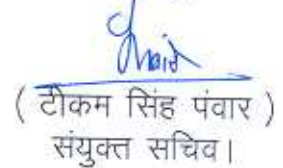 ( टीकम सिंह पंवार )
संयुक्त सचिव।